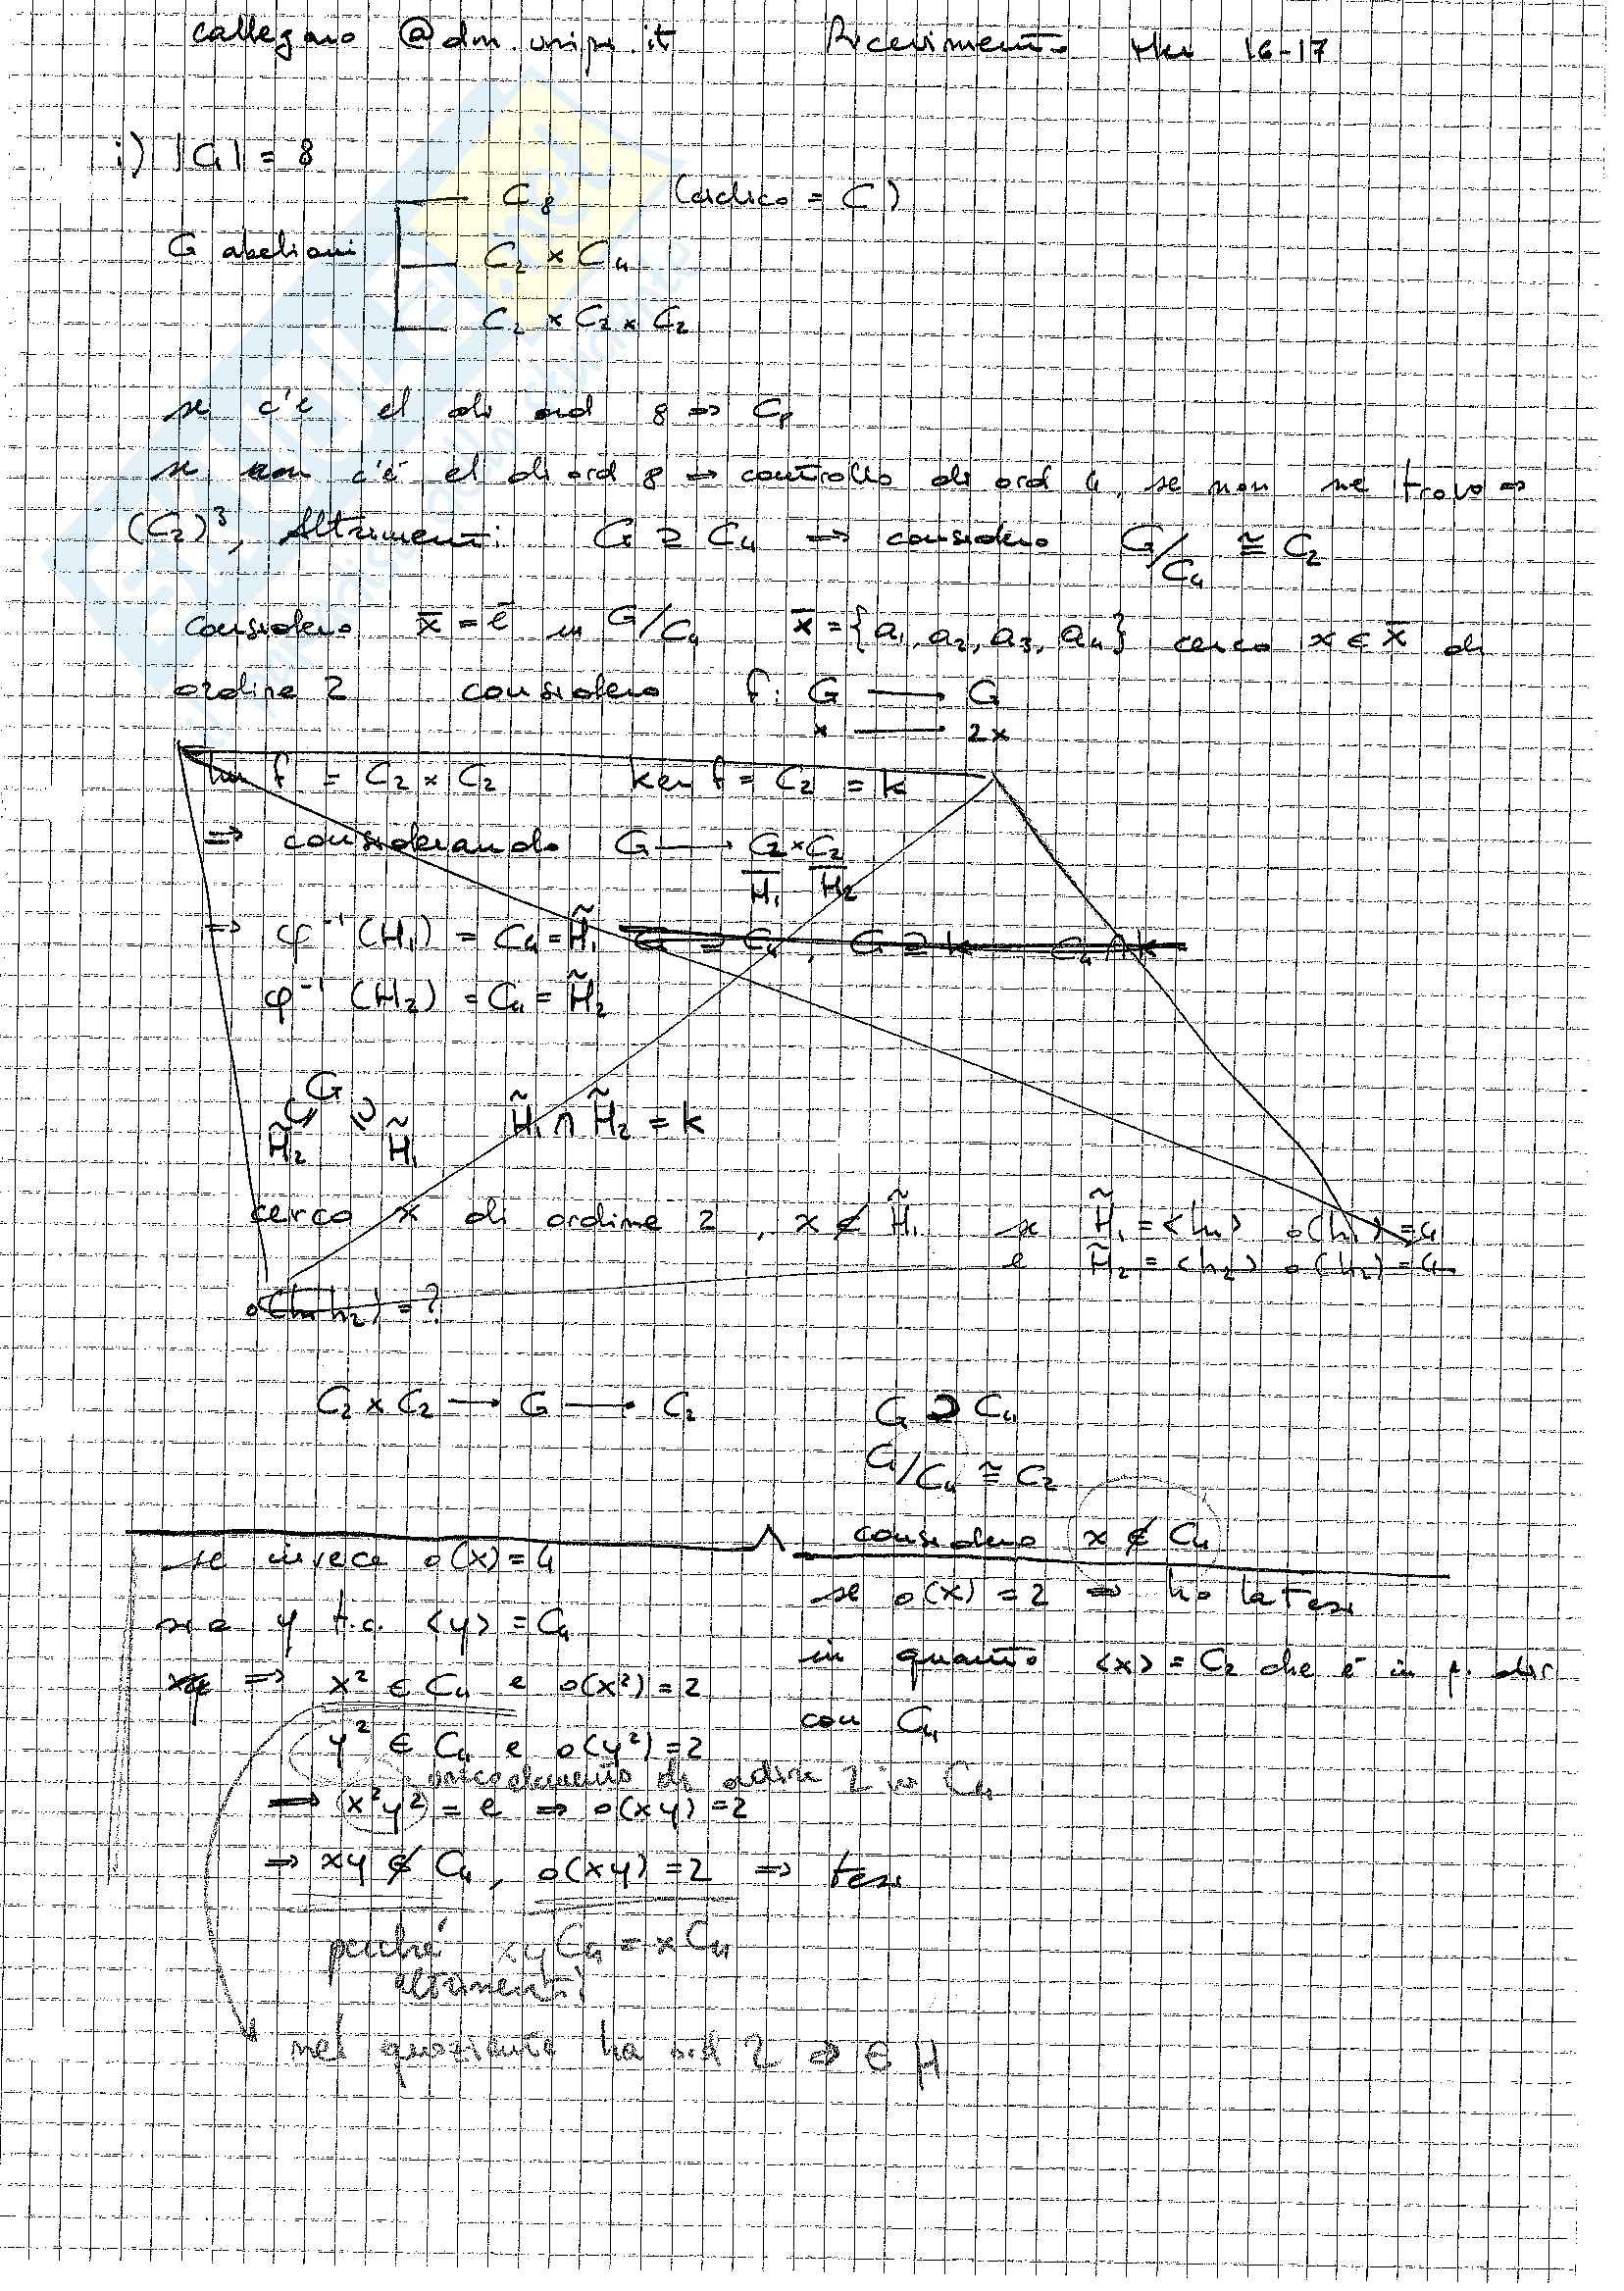 callegaro @dm.unipi.it Ricevimento 16-17
i) |G| = 8
G abeliani
C₈ (ciclico = C)
C₂ × C₄
C₂ × C₂ × C₂
se c'è el di ord 8 ⇒ C₈
se non c'è el di ord 8 ⇒ controllo di ord 4, se non ne trovo ⇒
(C₂)³, Altrimenti: G ⊇ C₄ ⇒ considero G/C₄ ≅ C₂
considero x̄ = ē in G/C₄ x̄ = {a₁, a₂, a₃, a₄} cerco x ∈ x̄ di
ordine 2 considero f: G → G
x → 2x
Im f = C₂ × C₂ ker f = C₂ = k
⇒ considerando G → C₂ × C₂
H₁ H₂
⇒ φ⁻¹(H₁) = C₄ = H̃₁ G ⊇ C₄, G ⊇ k C₄ ∩ k
φ⁻¹(H₂) = C₄ = H̃₂
G
H̃₂ H̃₁ H̃₁ ∩ H̃₂ = k
cerco x di ordine 2, x ∉ H̃₁ se H̃₁ = <h₁> o(h₁) = 4
e H̃₂ = <h₂> o(h₂) = 4
o(h₁h₂) = ?
C₂ × C₂ → G → C₂ G ⊇ C₄
G/C₄ ≅ C₂
considero x ∉ C₄
se o(x) = 2 ⇒ ho la tesi
in quanto <x> = C₂ che è in p. dir
con C₄
se invece o(x) = 4
sia y t.c. <y> = C₄
⇒ x² ∈ C₄ e o(x²) = 2
y² ∈ C₄ e o(y²) = 2
unico elemento di ordine 2 in C₄
⇒ (x²y²) = e ⇒ o(xy) = 2
⇒ xy ∉ C₄, o(xy) = 2 ⇒ tesi
perché xyC₄ = xC₄
altrimenti
nel quoziente ha ord 2 ⇒ ∈ H